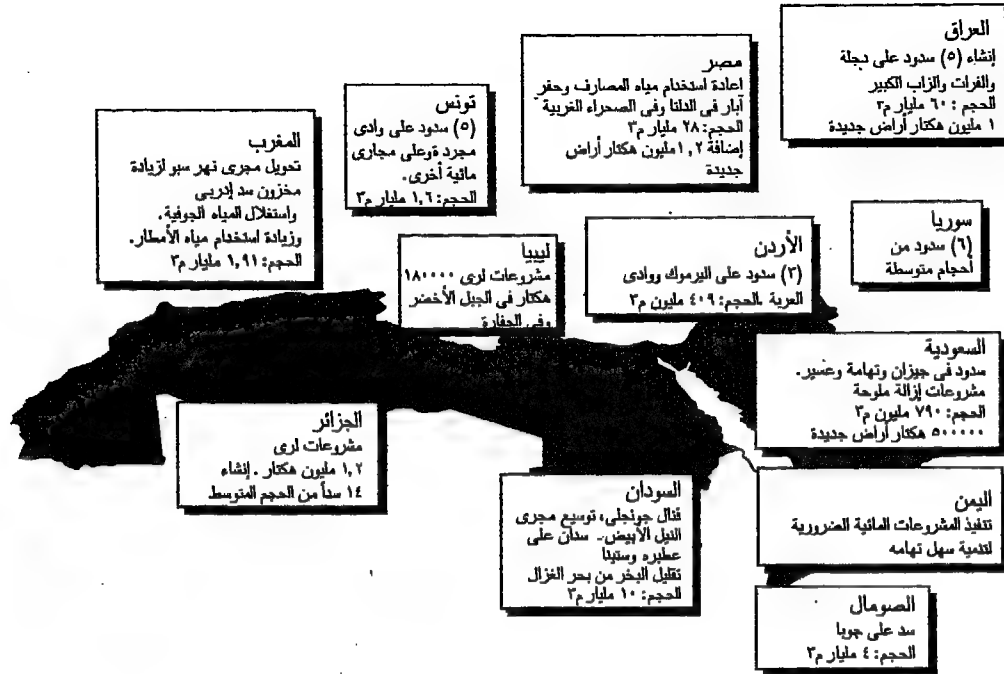 العراق
إنشاء (٥) سدود على دجلة
والفرات والزاب الكبير
الحجم : ٦٠ مليار م٣
١ مليون هكتار أراض جديدة
مصر
اعادة استخدام مياه المصارف وحفر
آبار فى الدلتا وفى الصحراء الغربية
الحجم: ٢٨ مليار م٣
إضافة ١,٢ مليون هكتار أراض
جديدة
تونس
(٥) سدود على وادى
مجردة وعلى مجارى
مائية أخرى.
الحجم: ١,٦ مليار م٣
المغرب
تحويل مجرى نهر سبو لزيادة
مخزون سد إدريى
واستغلال المياه الجوفية.
وزيادة استخدام مياه الأمطار.
الحجم: ١,٩١ مليار م٣
سوريا
(٦) سدود من
أحجام متوسطة
الأردن
(٣) سدود على اليرموك ووادى
العربة .الحجم: ٤٠٩ مليون م٣
ليبيا
مشروعات لرى ١٨٠٠٠٠
هكتار فى الجبل الأخضر
وفى الجفارة
السعودية
سدود فى جيزان وتهامة وعسير.
مشروعات إزالة ملوحة
الحجم: ٧٩٠ مليون م٣
٥٠٠٠٠٠ هكتار أراض جديدة
الجزائر
مشروعات لرى
١,٢ مليون هكتار . إنشاء
١٤ سداً من الحجم المتوسط
السودان
قنال جونجلى، توسيع مجرى
النيل الأبيض.. سدان على
عطبره وستيتا
تقليل البخر من بحر الغزال
الحجم: ١٠ مليار م٣
اليمن
تنفيذ المشروعات المائية الضرورية
لتنمية سهل تهامه
الصومال
سد على جوبا
الحجم: ٤ مليار م٣